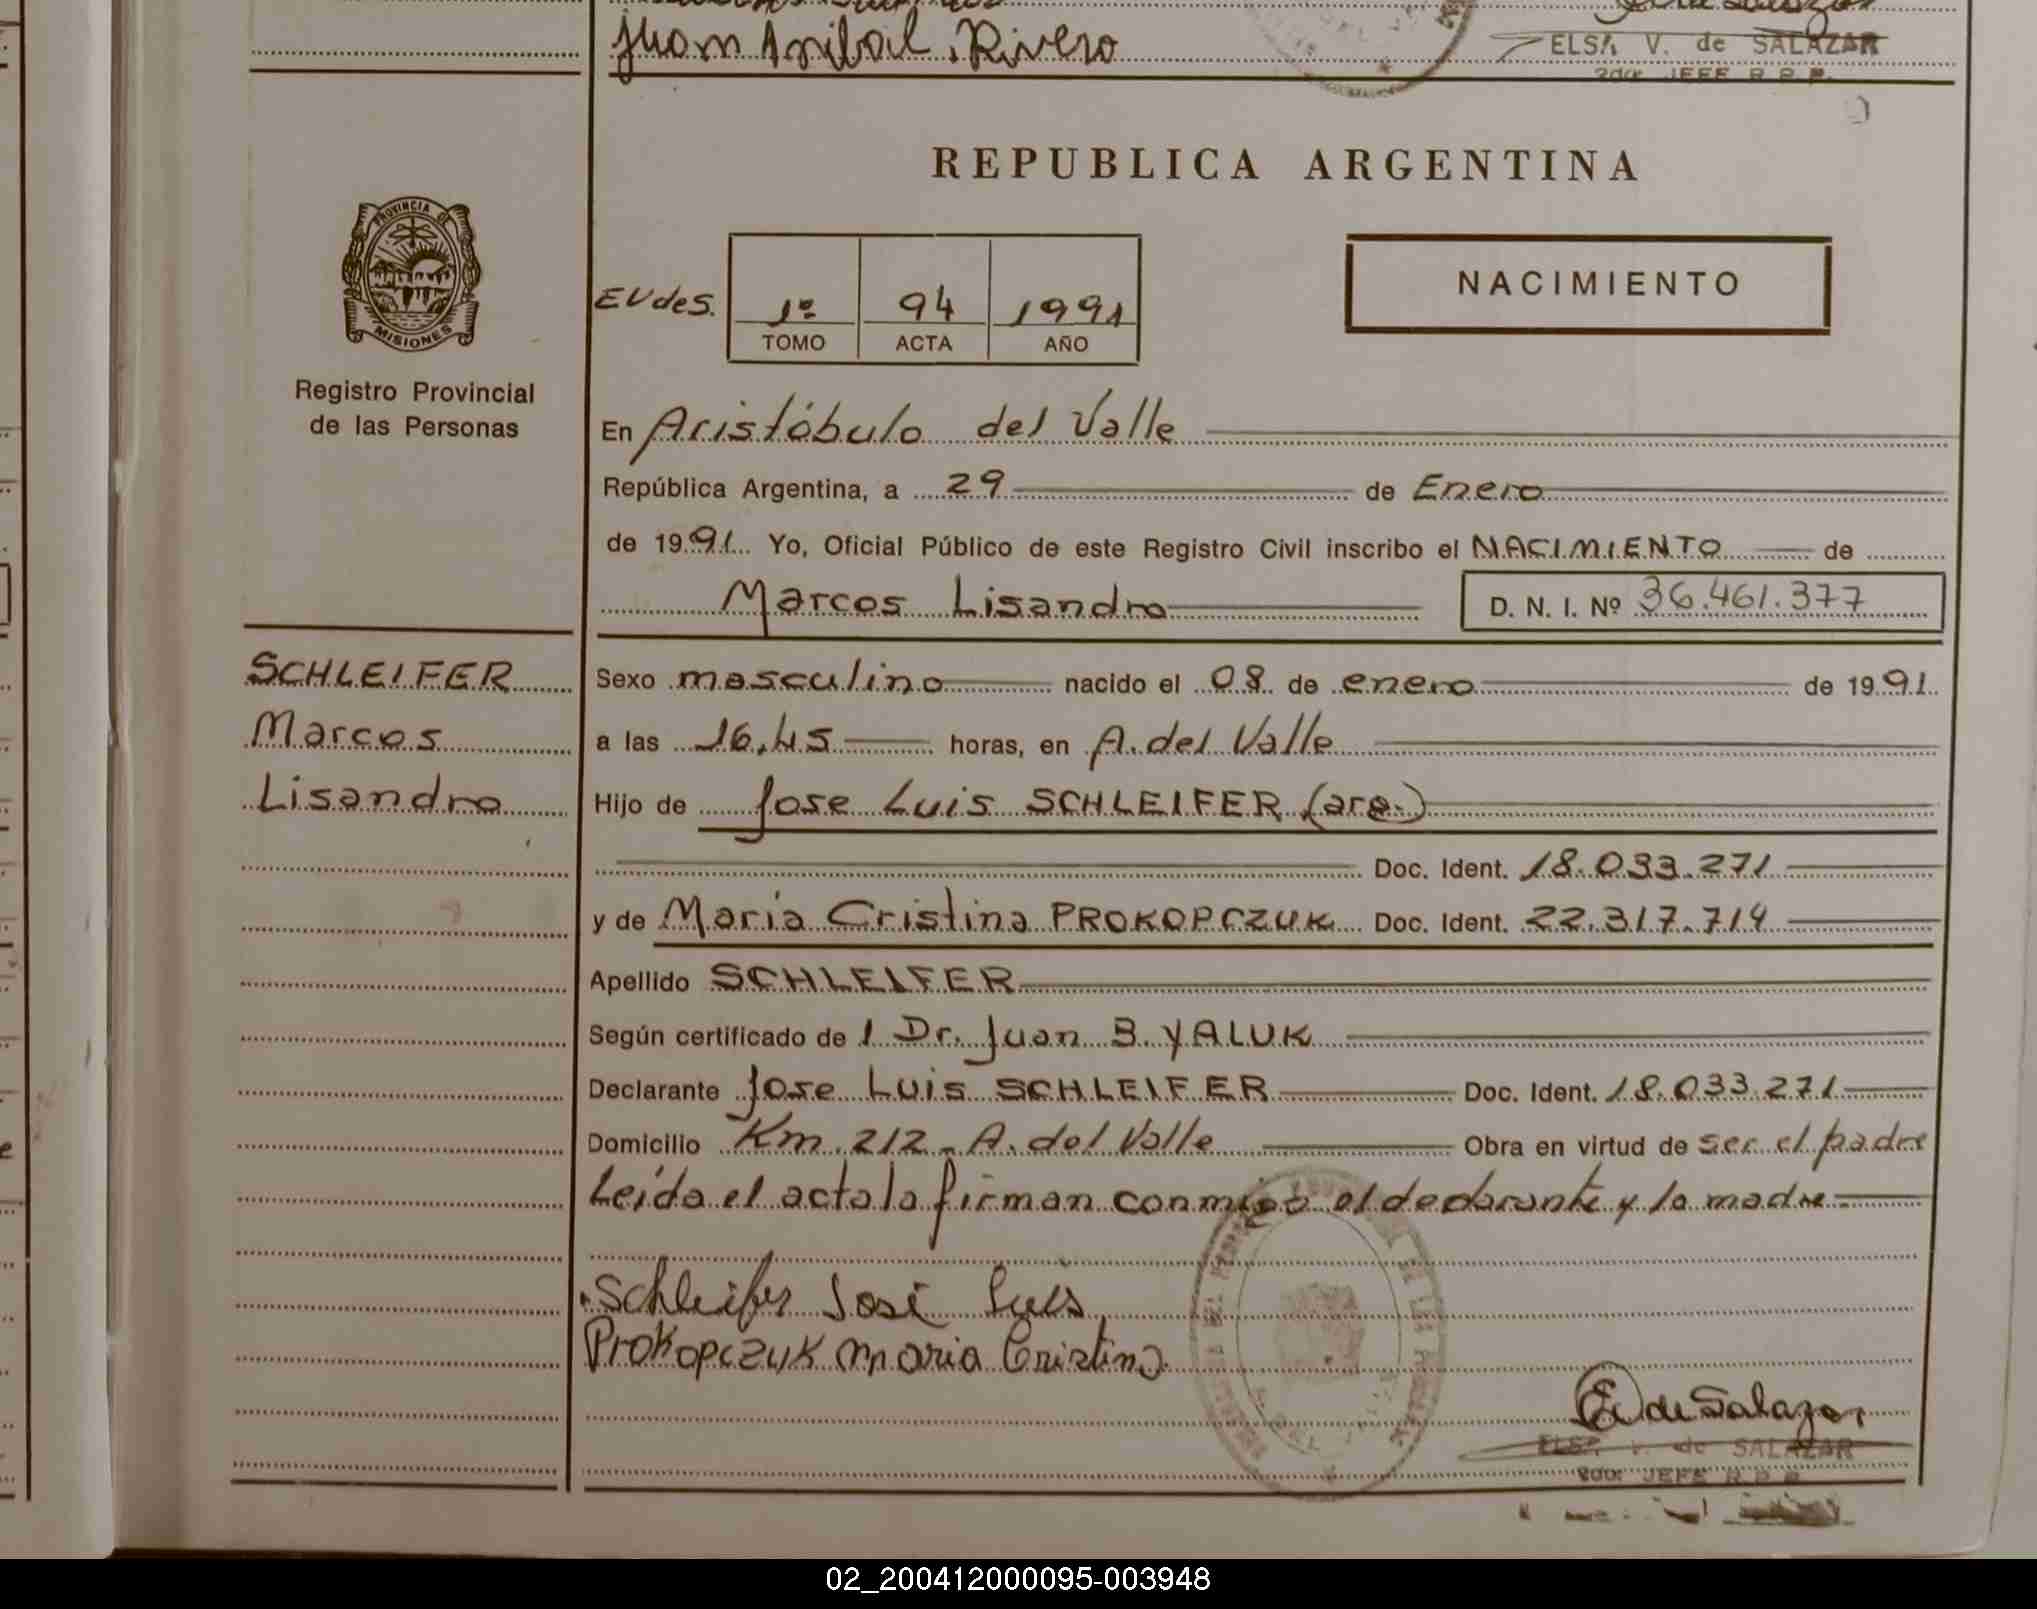 Juan Anibal Rivero
ELSA V. de SALAZAR
2do. JEFE R.P.P.
REPUBLICA ARGENTINA
PROVINCIA DE
MISIONES
Registro Provincial
de las Personas
1º 94 1991
TOMO ACTA AÑO
NACIMIENTO
En Aristóbulo del Valle
República Argentina, a 29 de Enero
de 1991. Yo, Oficial Público de este Registro Civil inscribo el NACIMIENTO de
Marcos Lisandro D. N. I. Nº 36.461.377
SCHLEIFER
Marcos
Lisandro
Sexo masculino nacido el 08 de enero de 1991.
a las 16,45 horas, en A. del Valle
Hijo de Jose Luis SCHLEIFER (arg.)
Doc. Ident. 18.033.271
y de Maria Cristina PROKOPCZUK Doc. Ident. 22.317.714
Apellido SCHLEIFER
Según certificado de l Dr. Juan B. YALUK
Declarante Jose Luis SCHLEIFER Doc. Ident. 18.033.271
Domicilio Km. 212 - A. del Valle Obra en virtud de ser el padre
Leída el acta la firman conmigo el declarante y la madre.-
Schleifer José Luis
Prokopczuk Maria Cristina
E de Salazar
ELSA V. de SALAZAR
2do. JEFE R.P.P.
02_200412000095-003948